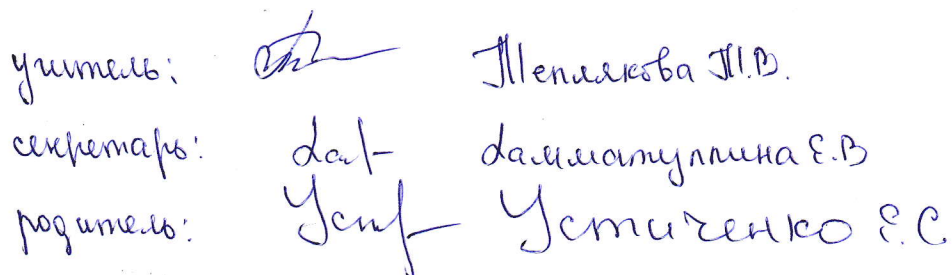 учитель: Теплякова Т.В.
секретарь: Хамматуллина Е.В
родитель: Устиченко Е.С.